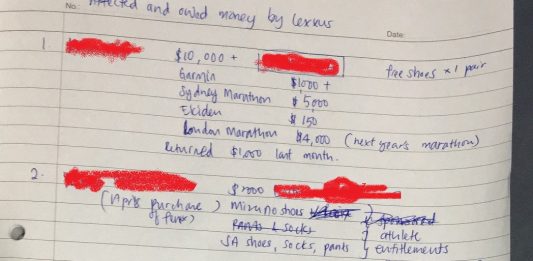 No.
affected and owed money by lexxus
Date:
1. $10,000 +
free shoes x 1 pair
Garmin $1000 +
Sydney Marathon $5000
Ekiden $150
London Marathon $4,000 (next year's marathon)
Returned $1,000 last month.
2.
purchase of
Mizuno shoes
sponsored
pants & socks
athlete
SA shoes, socks, pants
entitlements